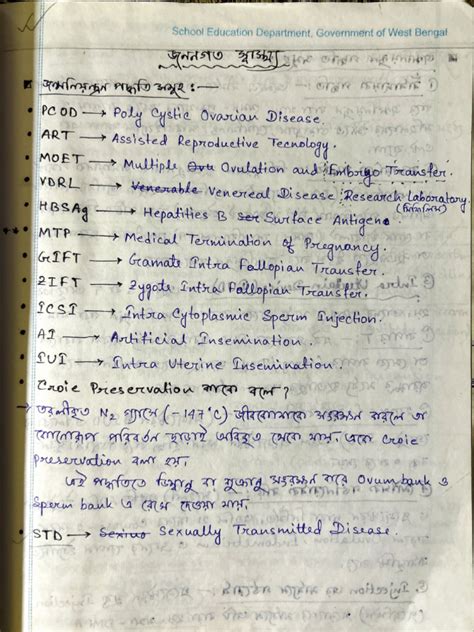 School Education Department, Government of West Bengal
জননগত স্বাস্থ্য
জন্মনিয়ন্ত্রন পদ্ধতি সমূহ :—
• PCOD → Poly Cystic Ovarian Disease.
• ART → Assisted Reproductive Tecnology.
• MOET → Multiple Ovu Ovulation and Embryo Transfer.
• VDRL → Venerable Venereal Disease Research Laboratary.
• HBSAg → Hepatities B ser Surface Antigene
• MTP → Medical Termination of Pregnancy.
• GIFT → Gramate Intra Fallopian Transfer.
• ZIFT → Zygote Intra Fallopian Transfer.
• ICSI → Intra Cytoplasmic Sperm Injection.
• AI → Artificial Insemination.
• IUI → Intra Uterine Insemination.
• Croie Preservation কাকে বলে?
→ তরলীকৃত N₂ গ্যাসে (-147°C) সংরক্ষন করলে তা
পরিবর্তন ছাড়াই অবিকৃত থেকে যায়, একে Croie
preservation বলা হয়।
এই পদ্ধতিতে ডিম্বানু বা শুক্রানু সংরক্ষন করে Ovum bank ও
Sperm bank এ রেখে দেওয়া যায়.
• STD → Sexiuo Sexually Transmitted Disease.